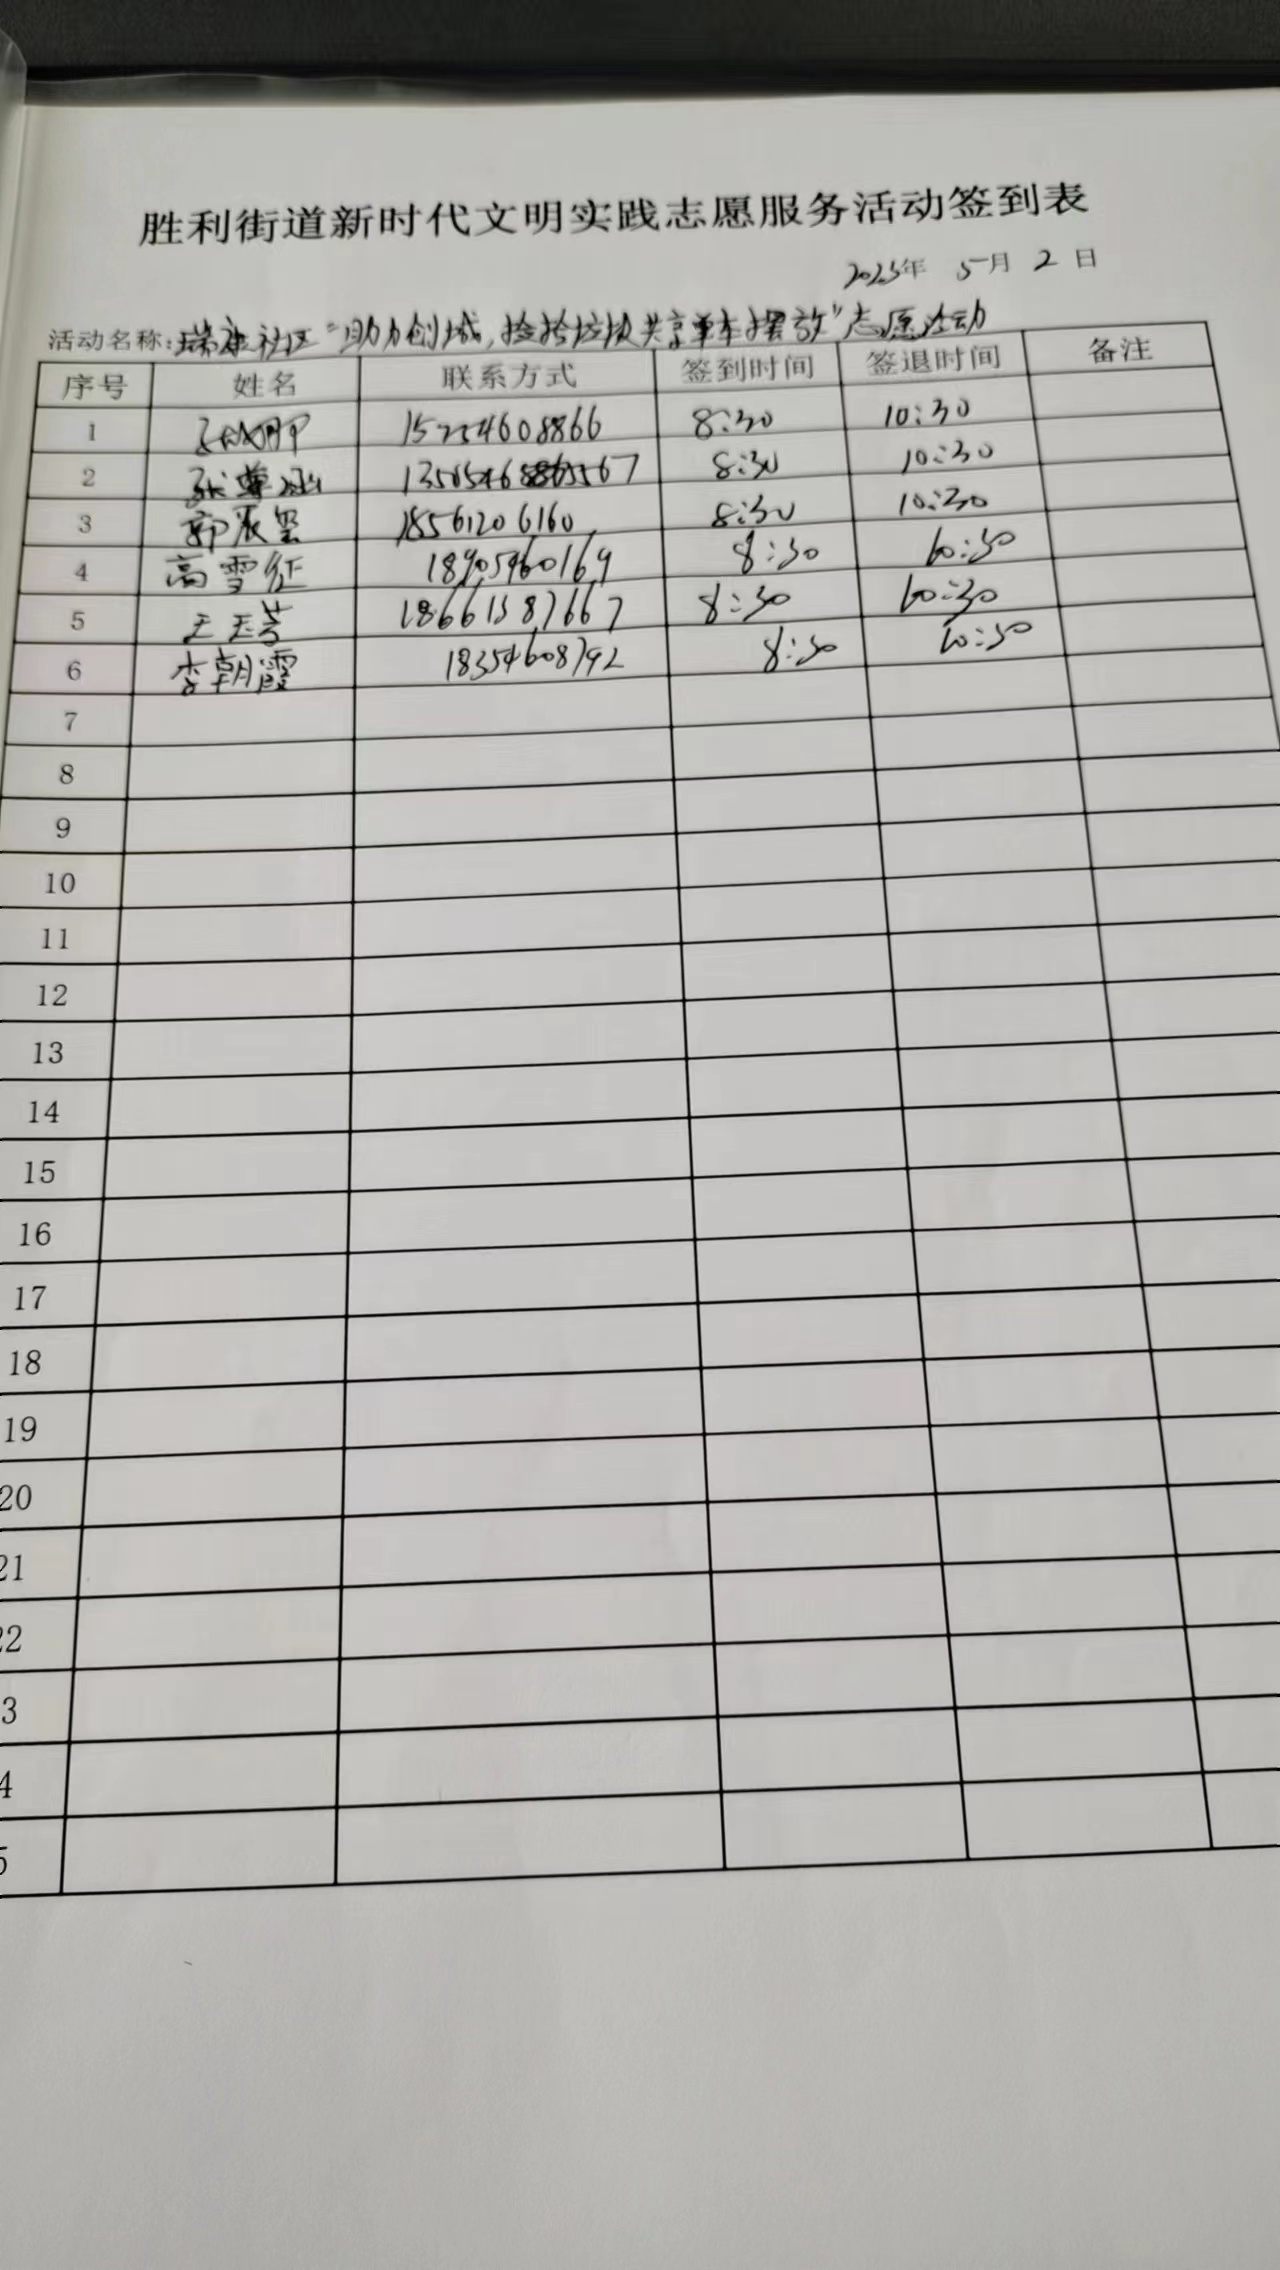 胜利街道新时代文明实践志愿服务活动签到表
2025年 5月 2日
活动名称:瑞康社区"助力创城,捡拾垃圾共享单车摆放"志愿活动
序号 姓名 联系方式 签到时间 签退时间 备注
1 15254608866 8:30 10:30
2 8:30 10:30
3 18561206160 8:30 10:30
4 高雪征 18905460169 8:30 10:30
5 王玉芳 18661387667 8:30 10:30
6 李朝霞 18354608792 8:30 10:30
7
8
9
10
11
12
13
14
15
16
17
18
19
20
21
22
3
4
5